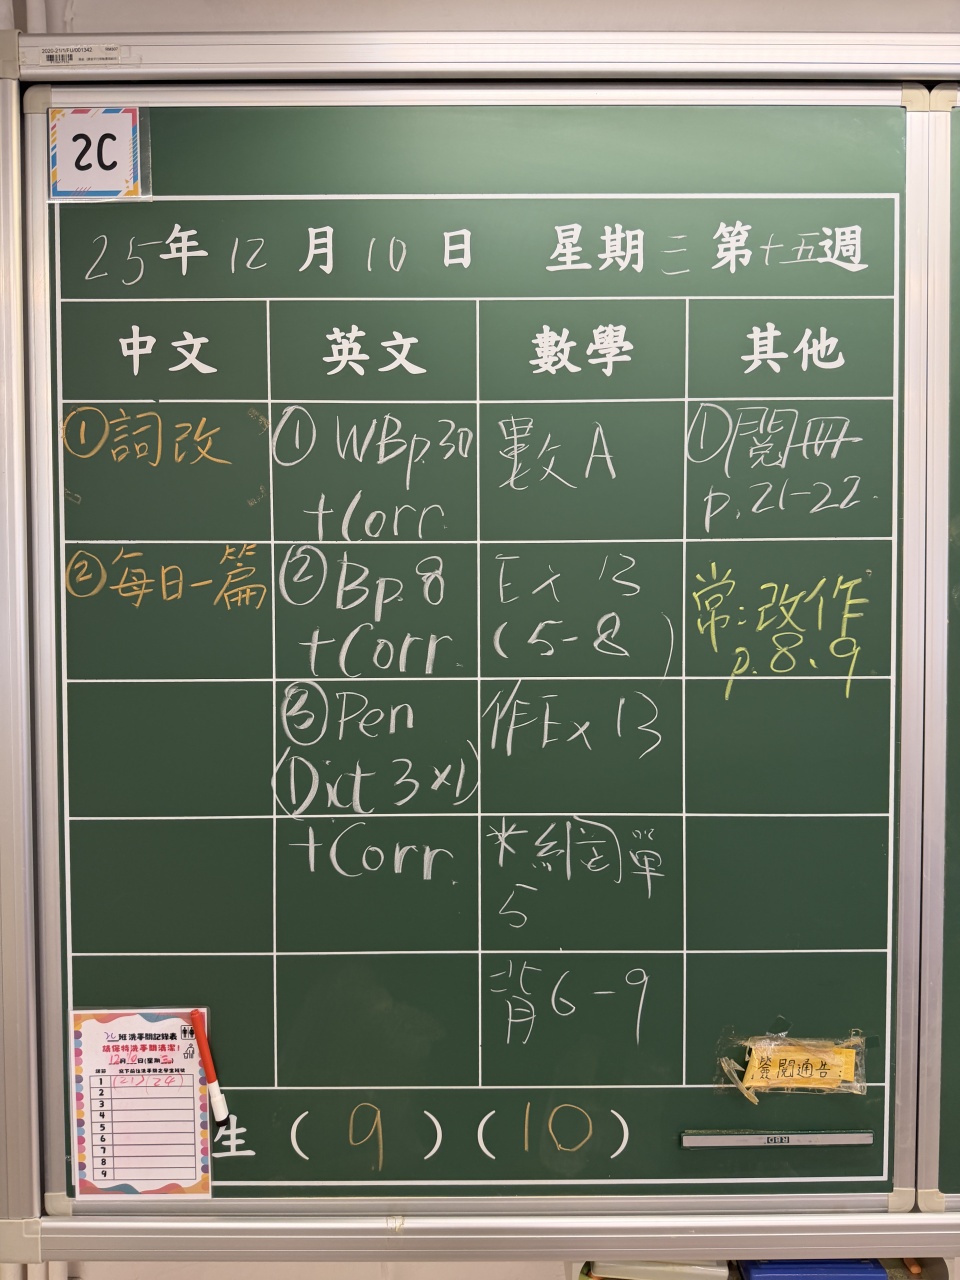 2020-21/1/FU/001342
2C
25年12月10日 星期三 第十五週
中文 英文 數學 其他
①詞改
②每日一篇
① WBp.30
+Corr.
② Bp.8
+Corr.
③ Pen
(Dict 3×1)
+Corr.
數A
Ex 13
(5-8)
作Ex 13
5
背6-9
①閱冊
p.21-22.
常:改作
p.8、9
簽閱通告:
2C班洗手間記錄表
請保持洗手間清潔!
12月10日(星期三)
1 (21)(24)
2
3
4
5
6
7
8
9
生 (9)(10)